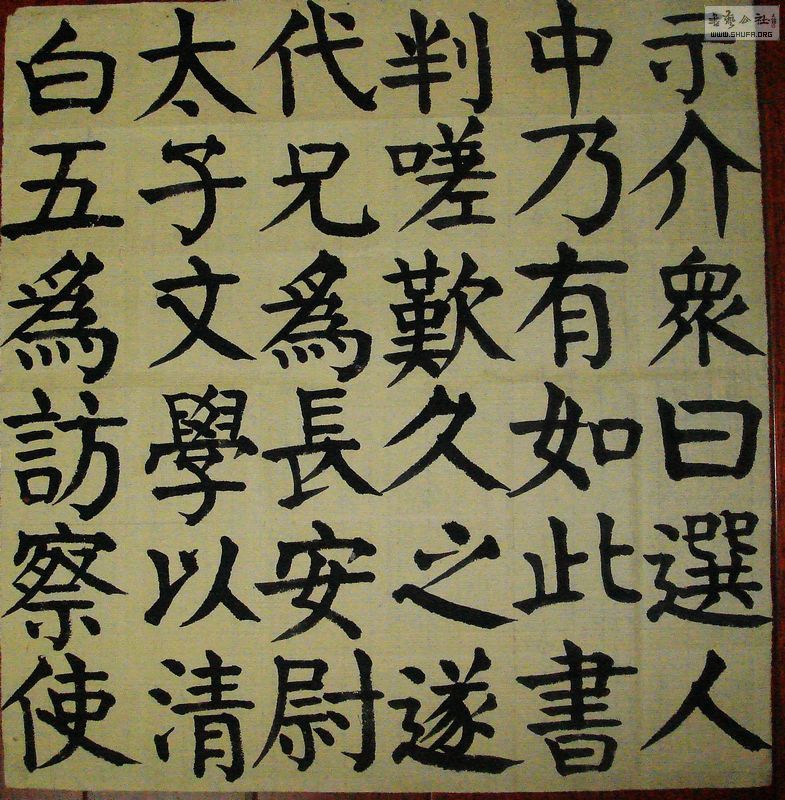 示介衆曰選人
中乃有如此書
判嗟歎久之遂
代兄爲長安尉
太子文學以清
白五爲訪察使
WWW.SHUFA.ORG